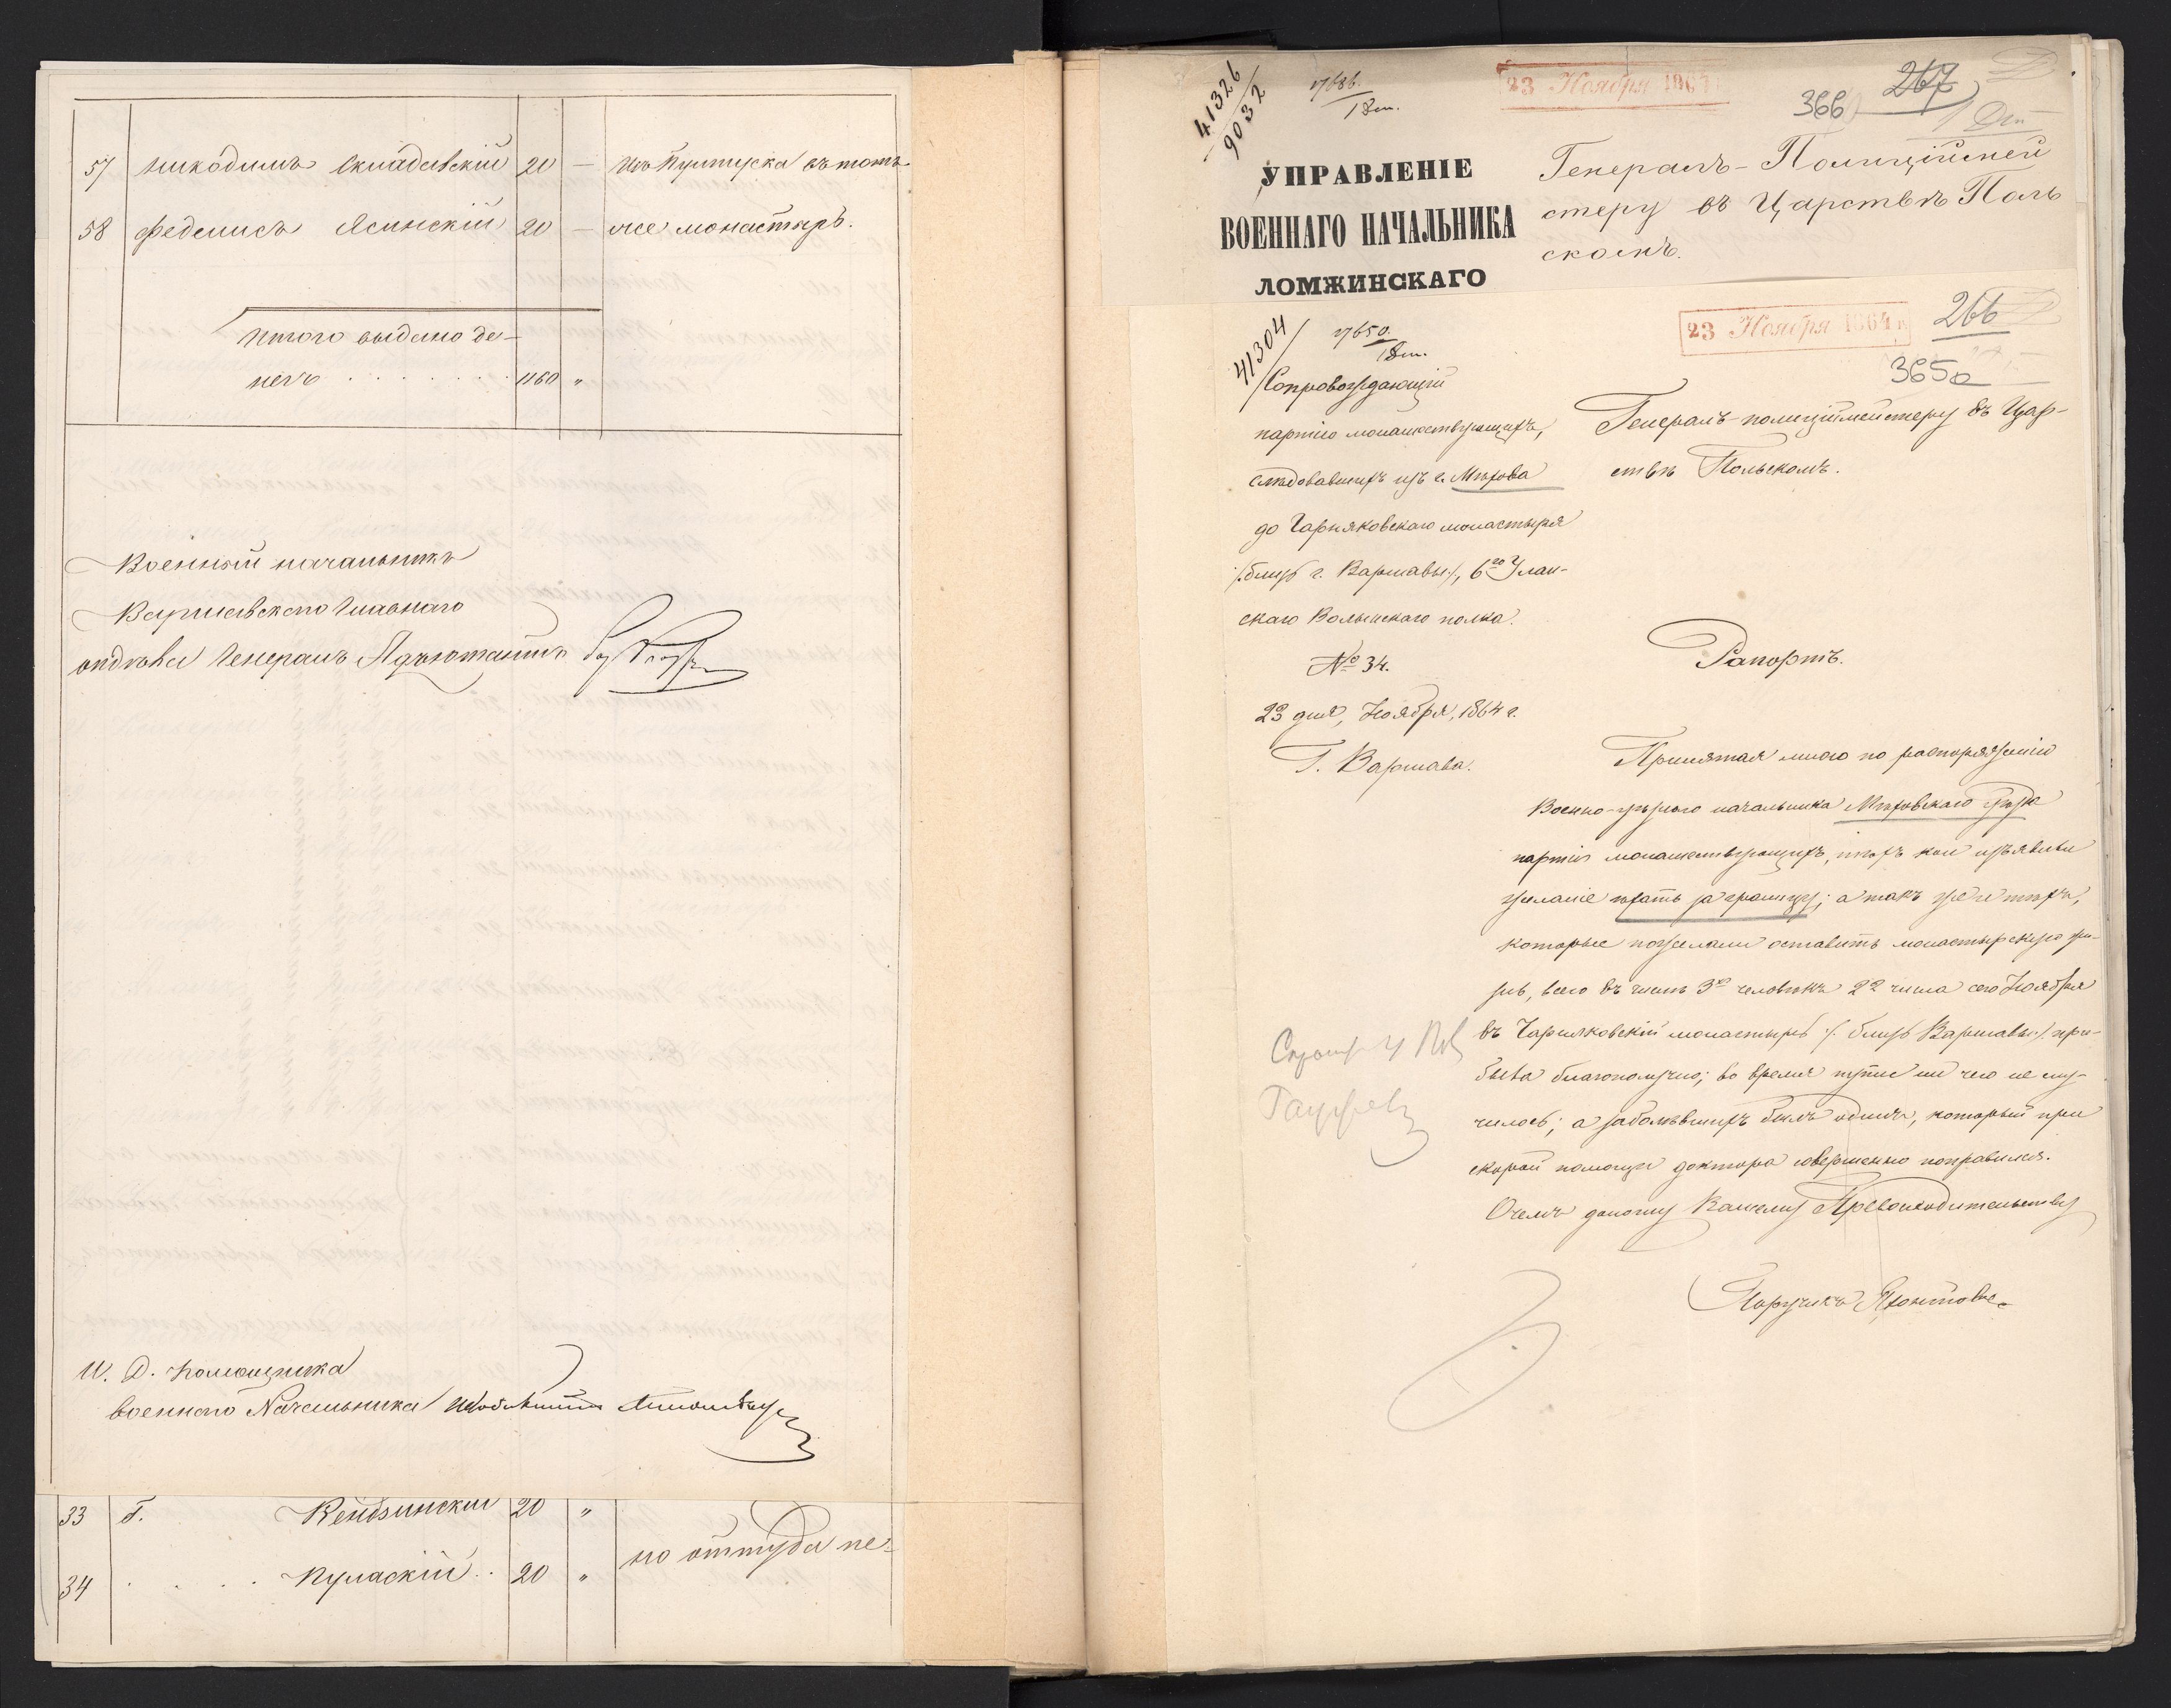 57 Никодимъ Складовскій 20 — изъ Пултуска въ томъ
58 Феликсъ Ясинскій 20 — же монастырѣ.
Итого выдано де-
негъ . . . . . . . 1160 "
Военный начальникъ
Варшавскаго Главнаго
отдѣла Генералъ Адъютантъ
И. Д. помощника
военнаго Начальника
33 Г. Кендзинскій 20 "
но оттуда пе-
34 . . . . Пуласкій . . 20 "
41326
9032
17686.
18 т.
23 Ноября 1864
267
366
УПРАВЛЕНІЕ
ВОЕННАГО НАЧАЛЬНИКА
ЛОМЖИНСКАГО
Генералъ-Полиціймей
стеру въ Царствѣ Поль
скомъ.
41304
17650.
18 т.
23 Ноября 1864 г.
266
365
Сопровождающій
партію монашествующихъ,
слѣдовавшихъ изъ г. Мѣхова
до Чарняковскаго монастыря
/:близъ г. Варшавы:/, 6го Улан-
скаго Волынскаго полка.
№ 34.
23 дня, Ноября, 1864 г.
Г. Варшава.
Генералъ-полиціймейстеру въ Цар-
ствѣ Польскомъ.
Рапортъ.
Принятая мною по распоряженію
Военно-уѣзднаго начальника Мѣховскаго уѣзда
партія монашествующихъ, тѣхъ кои изъявили
желаніе ѣхать за границу; а такъ же и тѣхъ,
которые пожелали оставить монастырскую жи-
знь, всего въ числѣ человѣкъ 22 числа сего Ноября
въ Чарняковскій монастырь /:близъ Варшавы:/ при-
была благополучно; во время пути ни чего не слу-
чилось; а заболѣвшихъ былъ одинъ, который при
скорой помощи доктора совершенно поправился.
О чемъ доношу Вашему Превосходительству
Поручикъ